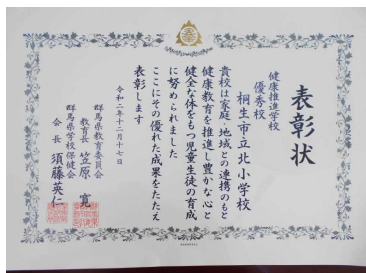 表彰状
健康推進学校
優秀校
桐生市立北小学校
貴校は家庭・地域との連携のもと
健康教育を推進し豊かな心と
健全な体をもつ児童生徒の育成
に努められました
ここにその優れた成果をたたえ
表彰します
令和二年十二月十七日
群馬県教育委員会
教育長 笠原 寛
群馬県学校保健会
会長 須藤英仁